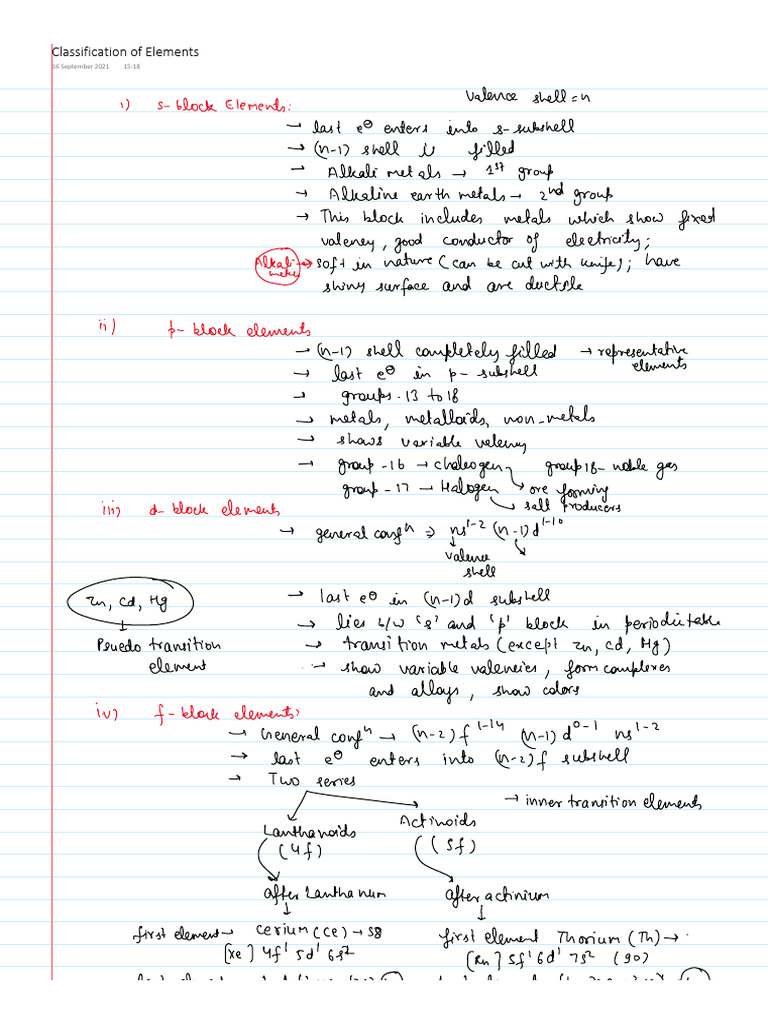 Classification of Elements
16 September 2021 15:18
Valence shell = n
i) s-block Elements:
→ last e⊖ enters into s-subshell
→ (n-1) shell is filled
→ Alkali metals → 1st group
→ Alkaline earth metals → 2nd group
→ This block includes metals which show fixed
valency, good conductor of electricity;
Alkali metals → soft in nature (can be cut with knife); have
shiny surface and are ductile
ii) p-block elements
→ (n-1) shell completely filled → representative
elements
→ last e⊖ in p-subshell
→ groups-13 to 18
→ metals, metalloids, non-metals
→ shows variable valency
→ group-16 → chalcogen group 18- noble gas
group-17 → Halogen → ore forming
→ salt producers
iii) d-block elements
→ general confⁿ ⇒ ns¹⁻² (n-1)d¹⁻¹⁰
valence
shell
Zn, Cd, Hg → last e⊖ in (n-1)d subshell
→ lies b/w 's' and 'p' block in periodic table
Psuedo transition → transition metals (except Zn, Cd, Hg)
element → show variable valencies, form complexes
and alloys, show colors
iv) f-block elements:
→ General confⁿ → (n-2)f¹⁻¹⁴ (n-1)d⁰⁻¹ ns¹⁻²
→ last e⊖ enters into (n-2)f subshell
→ Two series
→ inner transition elements
Lanthanoids Actinoids
(4f) (5f)
after Lanthanum after actinium
first element → Cerium (Ce) → 58 first element Thorium (Th) →
[Xe] 4f¹ 5d¹ 6s² [Rn] 5f¹ 6d¹ 7s² (90)